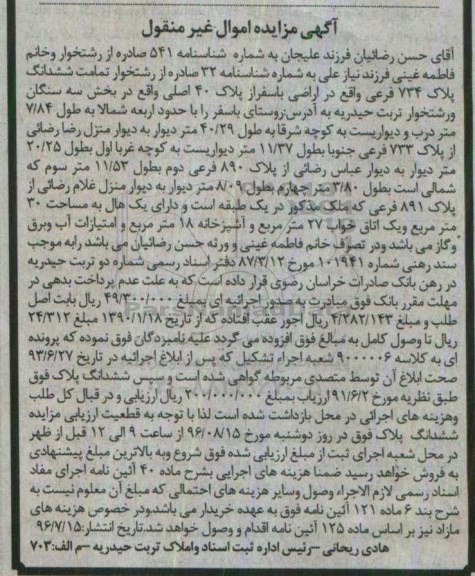 آگهی مزایده اموال غیر منقول
آقای حسن رضائیان فرزند علیجان به شماره شناسنامه ۵۴۱ صادره از رشتخوار وخانم
فاطمه غینی فرزند نیاز علی به شماره شناسنامه ۳۲ صادره از رشتخوار تمامت ششدانگ
پلاک ۷۳۴ فرعی واقع در اراضی باسفراز پلاک ۴۰ اصلی واقع در بخش سه سنگان
ورشتخوار تربت حیدریه به آدرس:روستای باسفر را با حدود اربعه شمالا به طول ۷/۸۴
متر درب و دیواریست به کوچه شرقا به طول ۴۰/۲۹ متر دیوار به دیوار منزل رضا رضائی
از پلاک ۷۳۳ فرعی جنوبا بطول ۱۱/۳۷ متر دیواریست به کوچه غربا اول بطول ۲۰/۲۵
متر دیوار به دیوار عباس رضائی از پلاک ۸۹۰ فرعی دوم بطول ۱۱/۵۳ متر سوم که
شمالی است بطول ۲/۸۰ متر چهارم بطول ۸/۰۹ متر دیوار به دیوار منزل غلام رضائی از
پلاک ۸۹۱ فرعی که ملک مذکور در یک طبقه است و دارای یک هال به مساحت ۳۰
متر مربع ویک اتاق خواب ۲۷ متر مربع و آشپزخانه ۱۸ متر مربع و امتیازات آب وبرق
وگاز می باشد ودر تصرف خانم فاطمه غینی و ورثه حسن رضائیان می باشد رابه موجب
سند رهنی شماره ۱۰۱۹۴۱ مورخ ۸۷/۳/۱۲ دفتر اسناد رسمی شماره دو تربت حیدریه
در رهن بانک صادرات خراسان رضوی قرار داده است که به علت عدم پرداخت بدهی در
مهلت مقرر بانک فوق مبادرت به صدور اجرائیه ای بمبلغ ۴۹/۳۰۰/۰۰۰ ریال بابت اصل
طلب و مبلغ ۴/۲۸۲/۱۴۳ ریال اجور عقب افتاده که از تاریخ ۱۳۹۰/۱/۱۸ مبلغ ۲۴/۳۱۲
ریال تا وصول کامل به مبالغ فوق افزوده می گردد علیه نامبردگان فوق نموده که پرونده
ای به کلاسه ۹۰۰۰۰۰۶ شعبه اجراء تشکیل که پس از ابلاغ اجرائیه در تاریخ ۹۳/۶/۲۷
صحت ابلاغ آن توسط متصدی مربوطه گواهی شده است و سپس ششدانگ پلاک فوق
طبق نظریه مورخ ۹۱/۶/۲ ارزیاب بمبلغ ۲۰۰/۰۰۰/۰۰۰ ریال ارزیابی و در قبال کل طلب
وهزینه های اجرائی در محل بازداشت شده است لذا با توجه به قطعیت ارزیابی مزایده
ششدانگ پلاک فوق در روز دوشنبه مورخ ۹۶/۰۸/۱۵ از ساعت ۹ الی ۱۲ قبل از ظهر
در محل شعبه اجرای ثبت از مبلغ ارزیابی شده فوق شروع وبه بالاترین مبلغ پیشنهادی
به فروش خواهد رسید ضمنا هزینه های اجرایی بشرح ماده ۴۰ آئین نامه اجرای مفاد
اسناد رسمی لازم الاجراء وصول وسایر هزینه های احتمالی که مبلغ آن معلوم نیست به
شرح بند ۶ ماده ۱۲۱ آئین نامه فوق به عهده خریدار می باشدودر خصوص هزینه های
مازاد نیز بر اساس ماده ۱۲۵ آئین نامه اقدام و وصول خواهد شد.تاریخ انتشار:۹۶/۷/۱۵
هادی ریحانی -رئیس اداره ثبت اسناد واملاک تربت حیدریه -م الف:۷۰۳